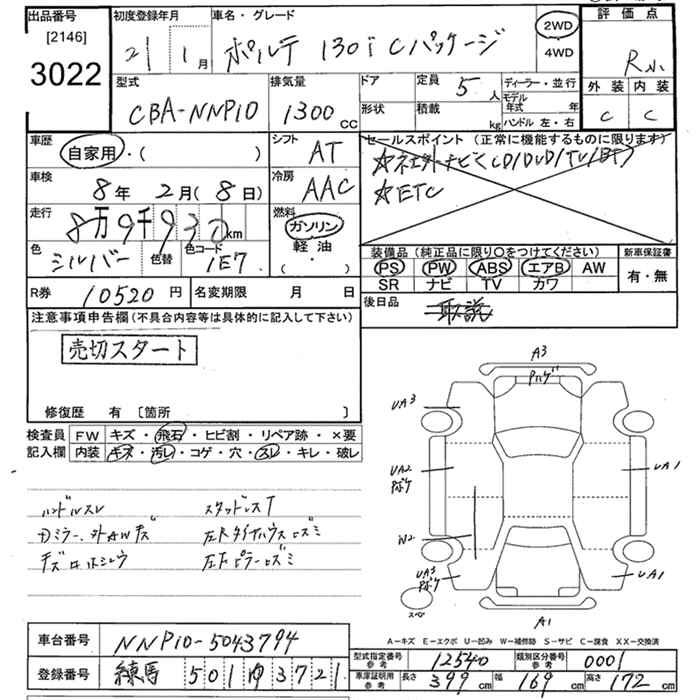 出品番号 初度登録年月 車名・グレード 評価点
[2146]
3022
21 1月 ポルテ 130i Cパッケージ 2WD 4WD R小
外装 内装
C C
型式 排気量 ドア 定員 ディーラー・並行
CBA-NNP10 1300CC 5人 モデル年式 年
形状 積載 kg ハンドル 左・右
車歴 シフト セールスポイント(正常に機能するものに限ります)
自家用・( ) AT
車検 冷房
8年 2月(8日) AAC ☆ETC
走行 燃料
8万9千930km ガソリン
色 色替 色コード 軽油
シルバー 1E7 ( ・ )
装備品(純正品に限り○をつけてください) 新車保証書
PS PW ABS エアB AW 有・無
SR ナビ TV カワ
R券 10520円 名変期限 月 日 後日品 取説
注意事項申告欄(不具合内容等は具体的に記入して下さい)
売切スタート
修復歴 有 〔箇所 〕
検査員 FW キズ・飛石・ヒビ割・リペア跡・×要
記入欄 内装 キズ・汚レ・コゲ・穴・スレ・キレ・破レ
ハンドルスレ スタッドレスT
A3
UA3
UA2
UA1
W2
UA3
UA1
A1
A-キズ E-エクボ U-凹み W-補修跡 S-サビ C-腐食 XX-交換済
車台番号 NNP10-5043794
登録番号 練馬 501 3721
型式指定番号 参考 12540 類別区分番号 参考 0001
車庫証明用 参考 長さ 399cm 幅 169cm 高さ 172cm